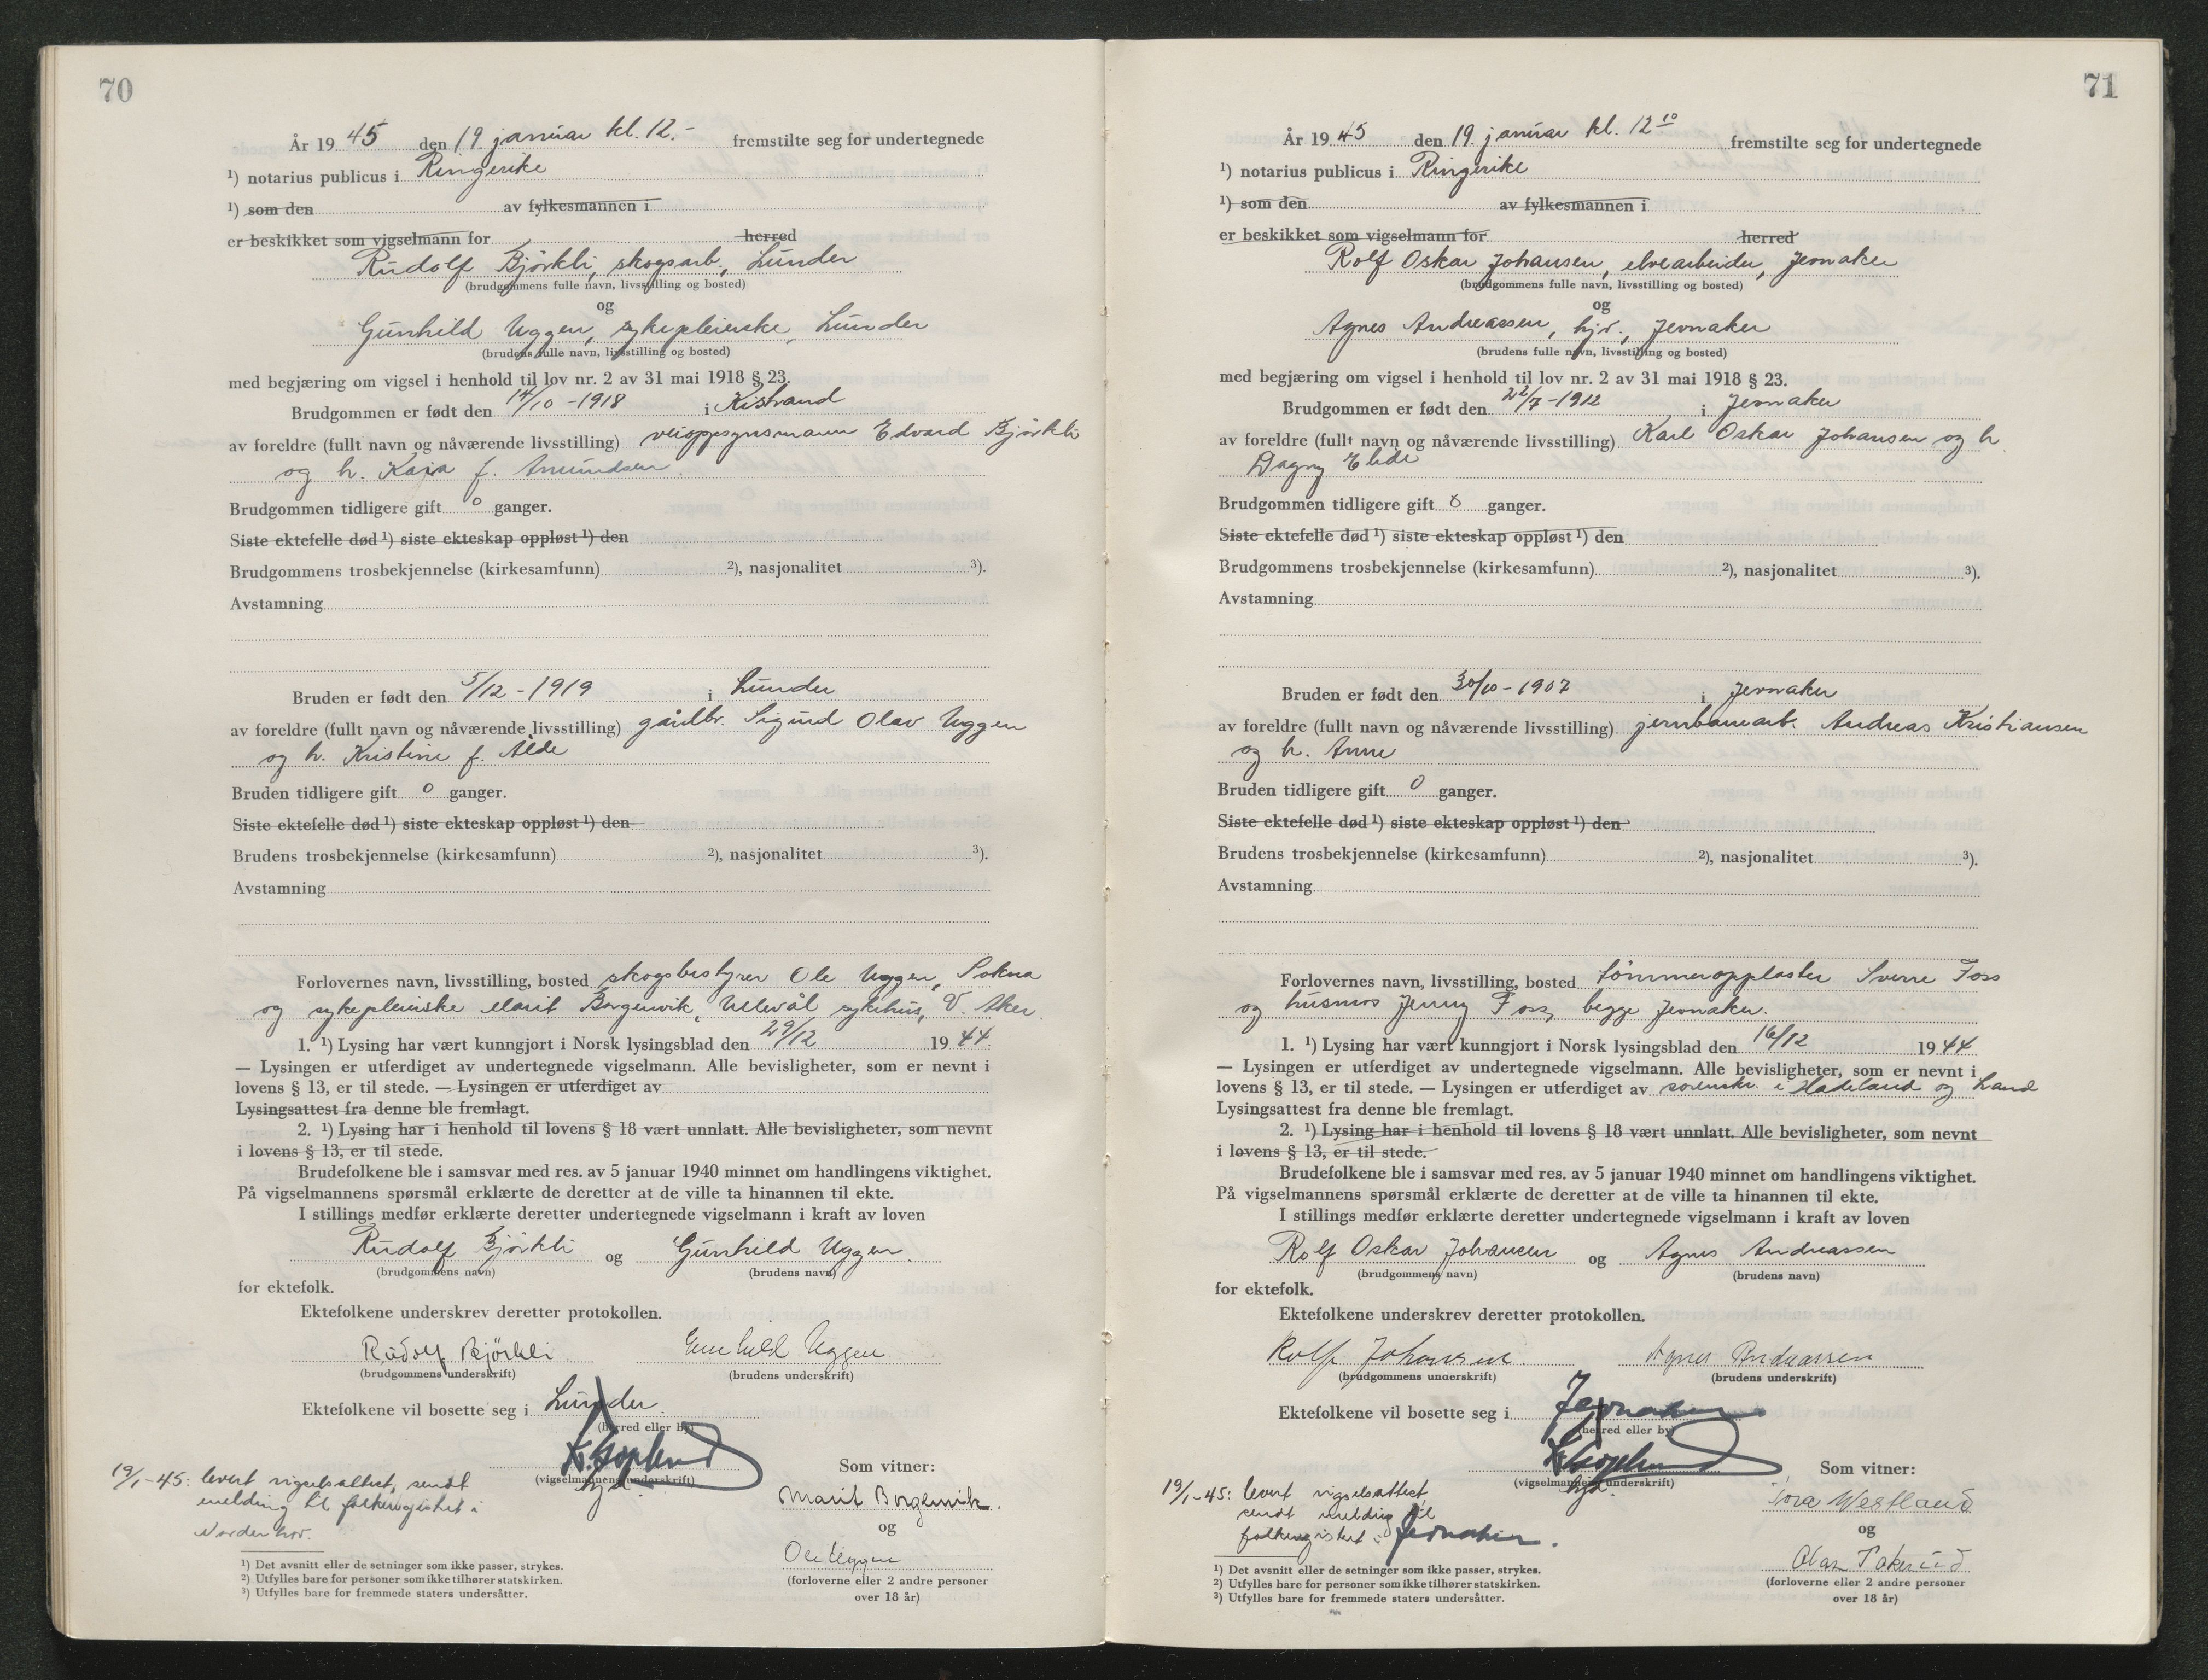 70
År 19 45 den 19. januar kl. 12.- fremstilte seg for undertegnede
¹) notarius publicus i Ringerike
¹) som den av fylkesmannen i
er beskikket som vigselmann for herred
Rudolf Bjørkli, skogsarb., Lunder
(brudgommens fulle navn, livsstilling og bosted)
og
Gunhild Uggen, sykepleierske, Lunder
(brudens fulle navn, livsstilling og bosted)
med begjæring om vigsel i henhold til lov nr. 2 av 31 mai 1918 § 23.
Brudgommen er født den 14/10 -1918 i Kistrand
av foreldre (fullt navn og nåværende livsstilling) veioppsynsmann Edvard Bjørkli
og h. Kaja f. Amundsen.
Brudgommen tidligere gift 0 ganger.
Siste ektefelle død ¹) siste ekteskap oppløst ¹) den
Brudgommens trosbekjennelse (kirkesamfunn) ²), nasjonalitet ³).
Avstamning
Bruden er født den 5/12 - 1919 i Lunder
av foreldre (fullt navn og nåværende livsstilling) gårdbr. Sigurd Olav Uggen
og h. Kristine f. Ålde
Bruden tidligere gift 0 ganger.
Siste ektefelle død ¹) siste ekteskap oppløst ¹) den
Brudens trosbekjennelse (kirkesamfunn) ²), nasjonalitet ³).
Avstamning
Forlovernes navn, livsstilling, bosted skogsbestyrer Ole Uggen, Sokna
og sykepleierske Marit Borgenvik, Ullevål sykehus, V. Aker.
1. ¹) Lysing har vært kunngjort i Norsk lysingsblad den 29/12 19 44.
— Lysingen er utferdiget av undertegnede vigselmann. Alle bevisligheter, som er nevnt i
lovens § 13, er til stede. — Lysingen er utferdiget av
Lysingsattest fra denne ble fremlagt.
2. ¹) Lysing har i henhold til lovens § 18 vært unnlatt. Alle bevisligheter, som nevnt
i lovens § 13, er til stede.
Brudefolkene ble i samsvar med res. av 5 januar 1940 minnet om handlingens viktighet.
På vigselmannens spørsmål erklærte de deretter at de ville ta hinannen til ekte.
I stillings medfør erklærte deretter undertegnede vigselmann i kraft av loven
Rudolf Bjørkli og Gunhild Uggen.
(brudgommens navn) (brudens navn)
for ektefolk.
Ektefolkene underskrev deretter protokollen.
Rudolf Bjørkli Gunhild Uggen
(brudgommens underskrift) (brudens underskrift)
Ektefolkene vil bosette seg i Lunder.
(herred eller by)
(vigselmannens underskrift)
hjd.
Som vitner:
19/1-45: levert vigselsattest, sendt
melding til folkeregistret i
Norderhov.
Marit Borgenvik.
og
Ole Uggen
(forloverne eller 2 andre personer
over 18 år)
¹) Det avsnitt eller de setninger som ikke passer, strykes.
²) Utfylles bare for personer som ikke tilhører statskirken.
³) Utfylles bare for fremmede staters undersåtter.
71
År 19 45 den 19. januar kl. 12 10 fremstilte seg for undertegnede
¹) notarius publicus i Ringerike
¹) som den av fylkesmannen i
er beskikket som vigselmann for herred
Rolf Oskar Johansen, elvearbeider, Jevnaker
(brudgommens fulle navn, livsstilling og bosted)
og
Agnes Andreassen, hjv., Jevnaker
(brudens fulle navn, livsstilling og bosted)
med begjæring om vigsel i henhold til lov nr. 2 av 31 mai 1918 § 23.
Brudgommen er født den 22/7 -1912 i Jevnaker
av foreldre (fullt navn og nåværende livsstilling) Karl Oskar Johansen og h.
Dagny Elide
Brudgommen tidligere gift 0 ganger.
Siste ektefelle død ¹) siste ekteskap oppløst ¹) den
Brudgommens trosbekjennelse (kirkesamfunn) ²), nasjonalitet ³).
Avstamning
Bruden er født den 30/10 - 1907 i Jevnaker
av foreldre (fullt navn og nåværende livsstilling) jernbanearb. Andreas Kristiansen
og h. Anne
Bruden tidligere gift 0 ganger.
Siste ektefelle død ¹) siste ekteskap oppløst ¹) den
Brudens trosbekjennelse (kirkesamfunn) ²), nasjonalitet ³).
Avstamning
Forlovernes navn, livsstilling, bosted tømmeropplaster Sverre Foss
og husmor Jenny Foss, begge Jevnaker.
1. ¹) Lysing har vært kunngjort i Norsk lysingsblad den 16/12 19 44
— Lysingen er utferdiget av undertegnede vigselmann. Alle bevisligheter, som er nevnt i
lovens § 13, er til stede. — Lysingen er utferdiget av sorenskr. i Hadeland og Land
Lysingsattest fra denne ble fremlagt.
2. ¹) Lysing har i henhold til lovens § 18 vært unnlatt. Alle bevisligheter, som nevnt
i lovens § 13, er til stede.
Brudefolkene ble i samsvar med res. av 5 januar 1940 minnet om handlingens viktighet.
På vigselmannens spørsmål erklærte de deretter at de ville ta hinannen til ekte.
I stillings medfør erklærte deretter undertegnede vigselmann i kraft av loven
Rolf Oskar Johansen og Agnes Andreassen
(brudgommens navn) (brudens navn)
for ektefolk.
Ektefolkene underskrev deretter protokollen.
Rolf Johansen. Agnes Andreassen
(brudgommens underskrift) (brudens underskrift)
Ektefolkene vil bosette seg i Jevnaker
(herred eller by)
(vigselmannens underskrift)
hjd.
Som vitner:
19/1-45: levert vigselsattest,
sendt melding til
folkeregistret i Jevnaker.
Tora Westland
og
Olav Tokerud
(forloverne eller 2 andre personer
over 18 år)
¹) Det avsnitt eller de setninger som ikke passer, strykes.
²) Utfylles bare for personer som ikke tilhører statskirken.
³) Utfylles bare for fremmede staters undersåtter.